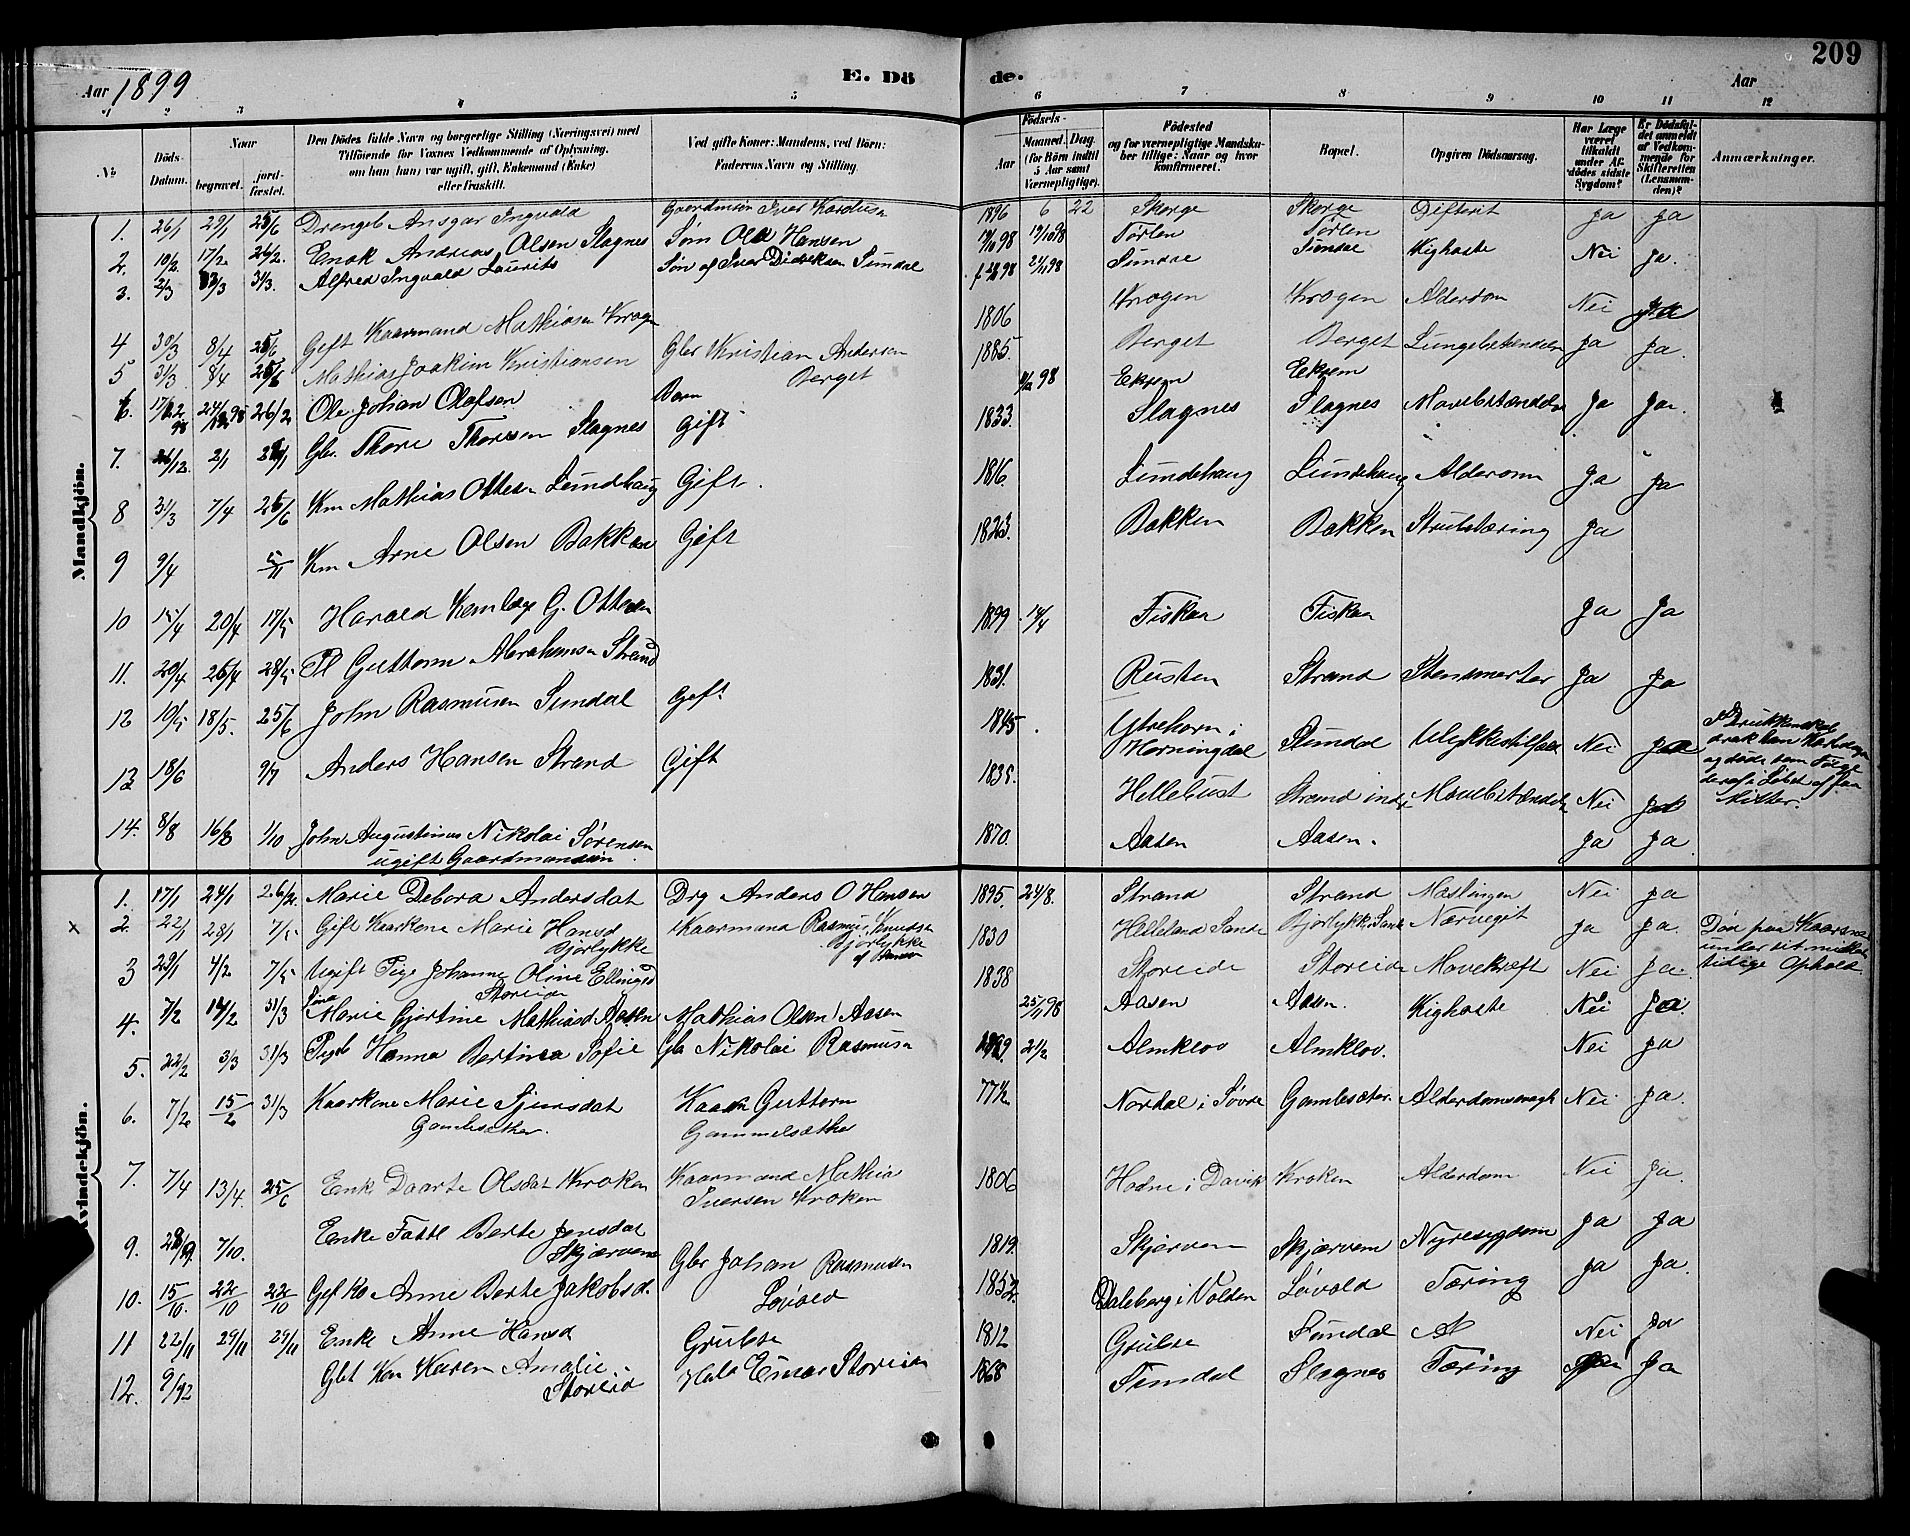 209
Aar 1899
E. Dö
de.
Aar
1 2 3 4 5 6 7 8 9 10 11 12
No
Döds-
Datum.
Naar
begravet.
jord-
fæstet.
Den Dödes fulde Navn og borgerlige Stilling (Næringsvei) med
Tilföiende for Voxnes Vedkommende af Oplysning,
om han (hun) var ugift, gift, Enkemand (Enke)
eller fraskilt.
Ved gifte Koner: Mandens, ved Börn:
Faderens Navn og Stilling.
Födsels-
Aar
Maaned. Dag
(for Börn indtil
5 Aar samt
Værnepligtige).
Födested
og for værnepligtige Mandska-
ber tillige: Naar og hvor
konfirmeret.
Bopæl.
Opgiven Dödsaarsag.
Har Læge
været
tilkaldt
under Af-
dödes sidste
Sygdom?
Er Dödsfal-
det anmeldt
af Vedkom-
mende for
Skifteretten
(Lensman-
den)?
Anmærkninger.
Mandkjön.
1. 26/1 29/1 25/6 Drengeb Ansgar Ingvald Gaardmsön Iver 1896 6 22 Skorge Skorge Difterit Ja Ja
2. 10/2 17/2 26/2 Enok Andreas Olsen Slagnes Sön Ole Hansen 19/10 98 Tørlen Tørlen
3. 2/3 3/3 31/3 Alfred Ingvald Laurits Søn af Iver Didriksen Sundal 98 Sundal Sundal Kighoste Nei Ja.
4 30/3 8/4 25/6 Gift Kaarmand Mathias 1806 Krogen Krogen Alderdom Nei Ja
5 31/3 8/4 25/6 Mathias Joakim Kristiansen Gbr Kristian Andersen Berget 1885. Berget Berget Ja Ja.
6. 24/12 98 26/2 Ole Johan Olafsen Barn 98 Eksem Eksem
7. 26/12 2/1 Gbr. Thore Slagnes Gift 1833 Slagnes Slagnes Ja Ja.
8 31/3 7/4 25/6 Km Mathias Ottesen Lundehaug Gift. 1816. Lundehaug Lundehaug Alderdom Ja Ja
9 9/4 5/11 Km Arne Olsen Bakken Gift 1823. Bakken Bakken Strubetæring Ja
10 15/4 20/4 17/5 Harald G. Ottesen 1899 14/4 Fisken Fisken Ja Ja
11. 20/4 26/4 28/5 Pl Guttorm Abrahamsen Strand 1831. Rusten Strand Stensmerter Ja Ja
12 10/5 18/5. 25/6 John Rasmusen Sundal Gift 1845 Ytrehorn i
Horningdal Sundal Ulykkestilfælde Nei Ja
13 18/6 9/7 Anders Hansen Strand Gift 1838. Hellebust Strand Nei Ja
14. 8/8 16/8 1/10 John Augustinus Nikolai Sørensen
ugift Gaardmandssøn. 1870. Aasen Aasen. Ja Ja
Kvindekjön.
1. 17/1 24/1 26/2. Marie Debora Andersdat Drg Anders O Hansen 1895. 24/8. Strand Strand Mæslingen Nei Ja
x 2. 22/1 28/1 7/5 Gift Kaarkone Marie Hansd
Bjørlykke Kaarmand Rasmus Knudsen
Bjørlykke 1830 Helleland Sande Bjørlykke Sande Ja Ja. Døe paa Kaarsne
under sit midler
tidige Ophold
3 29/1 4/2 7/5 Ugift Pige Johanne Oline Ellingsd
Storeide 1838 Storeide Storeide Mavekræft Nei Ja.
4. 7/2 14/2 31/3 Marie Gjertine Mathiasd Aasen Mathias Olsen Aasen 25/11 98 Aasen Aasen. Kighoste Nei Ja.
5. 22/2 3/3 31/3 Pigb Hanna Bertina Sofie Gb Nikolai Rasmusen 1899 21/2 Almklov Almklov. Nei Ja
6. 7/2 15/2 31/3 Kaarkone Marie Sjursdat
Gamlesæther. Kaarm Guttorm
Gammelsæther 77 1/2 Nordal i Søvre Gamlesæter. Alderdomssvagh Nei Ja.
7. 7/4 13/4. 25/6 Enke Daarte Olsdat Kroken Kaarmand Mathias
Iversen Kroken 1806 Hodne i Davik Kroken Alderdom Nei Ja.
9. 28/9 7/10. Enke Fattl Berte Jensdat
Skjærvem 1819. Skjærvem Skjærvem Nyresygdom Ja Ja
10. 15/10. 22/10 22/10 Gift Ko Anne Berte Jakobsd. Gbr Johan Rasmusen
Løvold 1852. Daleberg i Volden Løvold Tæring Ja Ja.
11 22/11 29/11 29/11 Enke Anne Hansd Grubse 1812 Grubse Sundal Al Nei Ja
12. 9/12 Gbt Kon Karen Amalie
Storeid Hals Einar Storeide 1868 Sundal Slagnes Tæring Ja Ja